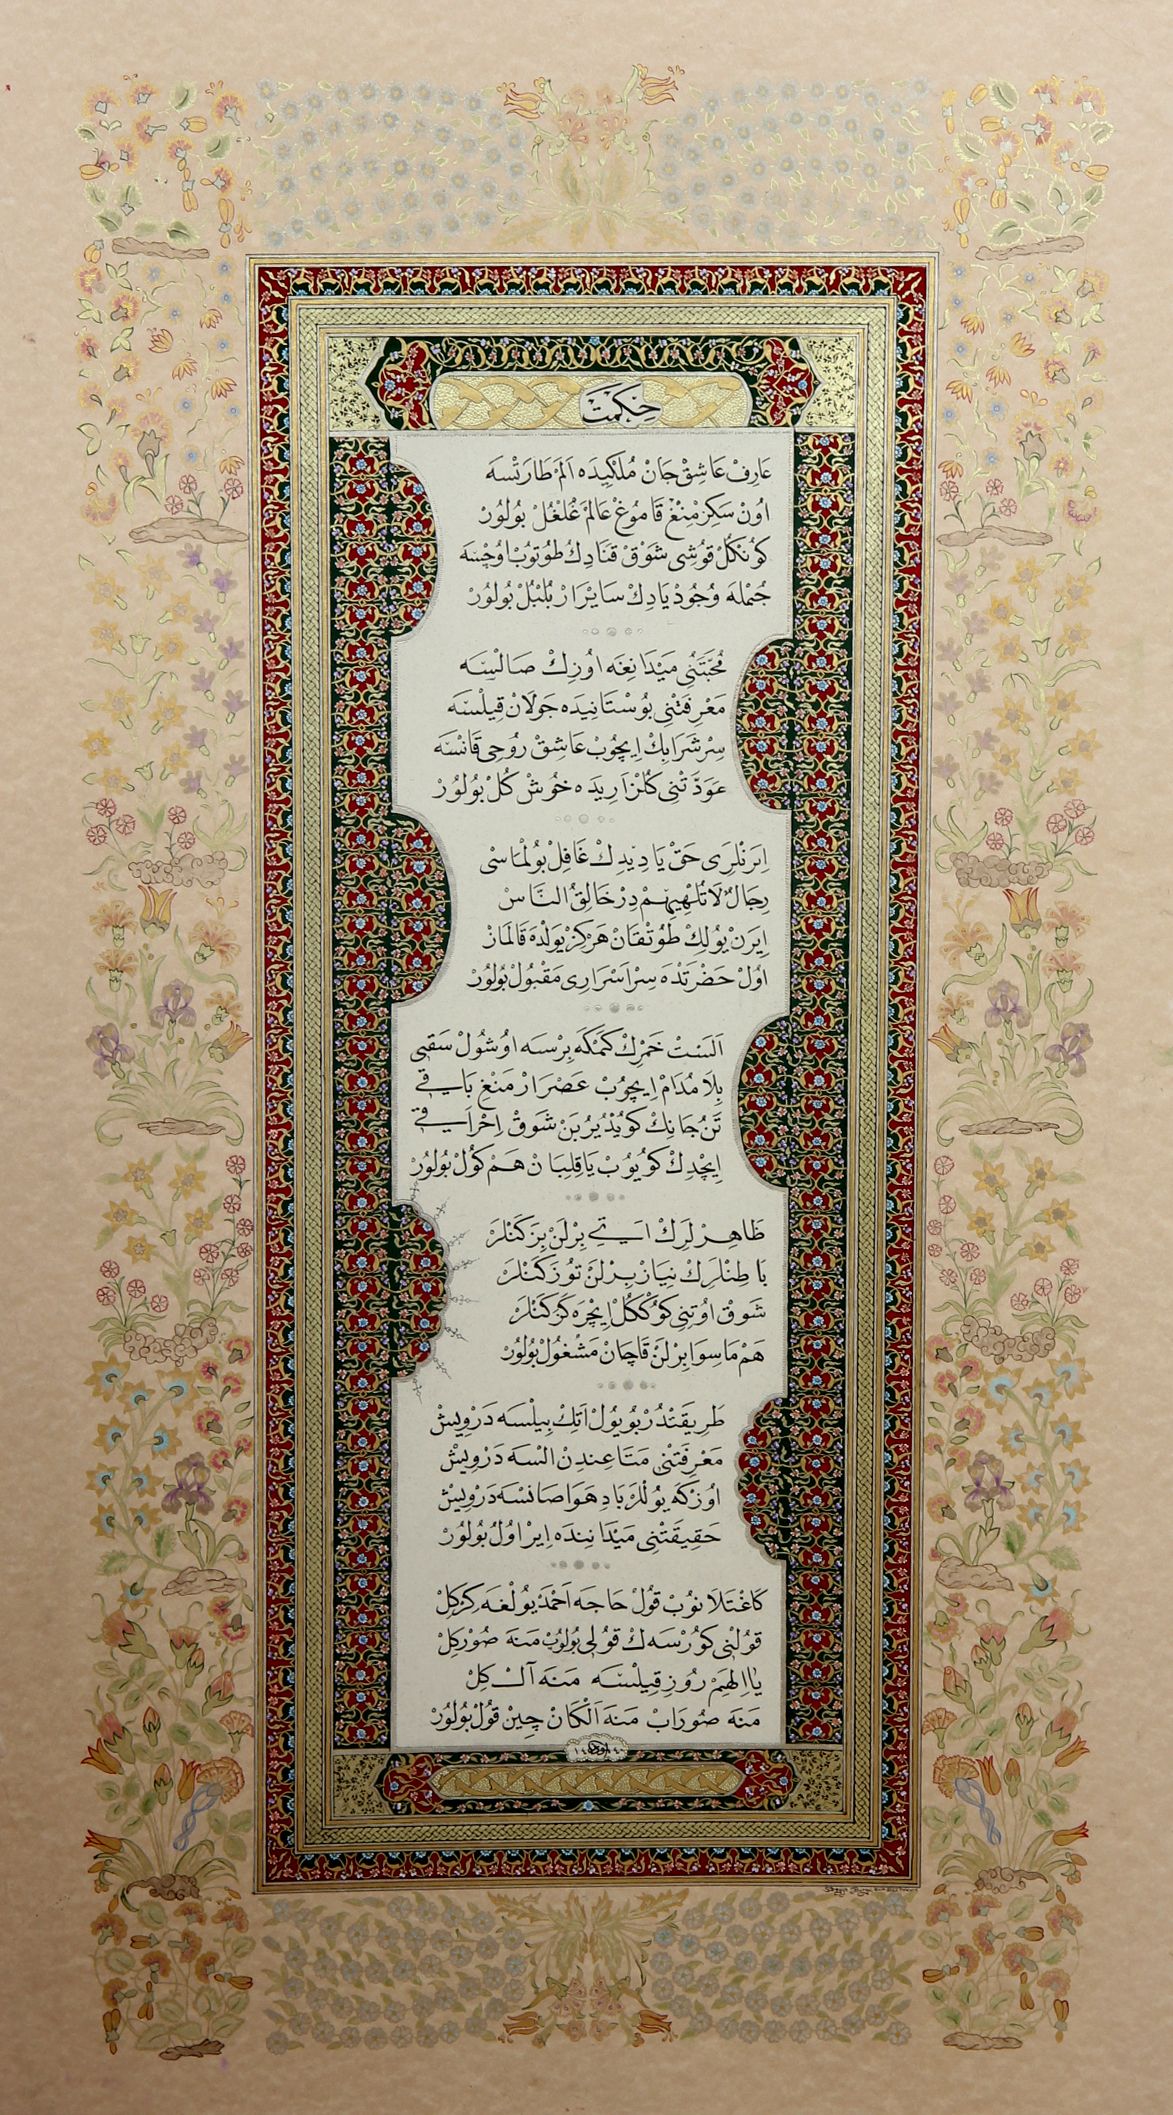 حِكْمَتْ
عَارِفْ عَاشِقْ جَانْ مُلْكِيدَه اَلَمْ طَارَتْسَه
اوُنْ سَكِزْ مِنْغْ قَامُوغْ عَالَمْ غُلْغُلْ بُولُورْ
كوُنْكُلْ قوُشِى شَوْقْ قَنَادِكْ طُوتوُبْ اوُچْسَه
جُمْلَه وُجُودْ يَادِكْ سَايْرَارْ بُلْبُلْ بُولُورْ
مُحَبَّتَنِى مَيْدَانِغَه اوُزِكْ صَالْسَه
مَعْرِفَتْنِى بوُسْتَانِيدَه جَوْلَانْ قِيلْسَه
سِرْ شَرَابِكْ اِيچوُبْ عَاشِقْ رُوحِى قَانْسَه
عَوَدَّتْنِى كُلْزَارِيدَه خوُشْ كُلْ بُولُورْ
اِيَرَنْلَرِى حَقْ يَادِيدِكْ غَافِلْ بوُلْمَاسْ
رِجَالٌ لَا تُلْهِيهِمْ دِرْ خَالِقُ النَّاسْ
اِيَرَنْ يوُلِكْ طُوتْقَانْ هَرْكِزْ يوَلْدَه قَالْمَازْ
اوُلْ حَضْرَتْدَه سِرْ اَسْرَارِى مَقْبُولْ بُولُورْ
اَلَسْتْ خَمْرِكْ كِمَنْكَه بِرْسَه اوُشُولْ سَقِى
بِلَا مُدَامْ اِيچوُبْ عَصْرَارْ مَنْغِ بَاقِى
تَنُ جَانِكْ كوُيْدُيرُبَنْ شَوْقْ اِحْرَاقِى
اِيچِدِكْ كوُيوُبْ يَاقِلِبَانْ هَمْ كوُلْ بُولُورْ
ظَاهِرْلَرِكْ اَيَتِى بِرْلَنْ بِزَكَنْلَرْ
بَاطِنْلَرِكْ نِيَازْ بِرْلَنْ تُوزَكَنْلَرْ
شَوْقْ اوُتِنِى كوُنْكُلْ اِيچْرَه كَزَكَنْلَرْ
هَمْ مَاسِوَا بِرْلَنْ قَاچَانْ مَشْغُولْ بُولُورْ
طَرِيقَتْدُرْ بوُ يوُلْ اَتِكْ بِيلْسَه دَرْوِيشْ
مَعْرِفَتْنِى مَتَاعِندِنْ اَلْسَه دَرْوِيشْ
اوُزْكَه يوُلْلَرْ بَادِ هَوَا صَانْسَه دَرْوِيشْ
حَقِيقَتْنِى مَيْدَانِندَه اِيرْ اوُلْ بُولُورْ
كَاغْتَلَانوُبْ قوُلْ خَاجَه اَحْمَدْ يوُلْغَه كِرْكِلْ
قوُلْنِى كوُرْسَه كْ قوُلِى بُولوُبْ مَنَه صُورْكِلْ
يَا اِلٰهِمْ رُوزِ قِيلْسَه مَنَه آلْكِلْ
مَنَه صُورَابْ مَنَه اَلْكَانْ چِينْ قُولْ بُولُورْ